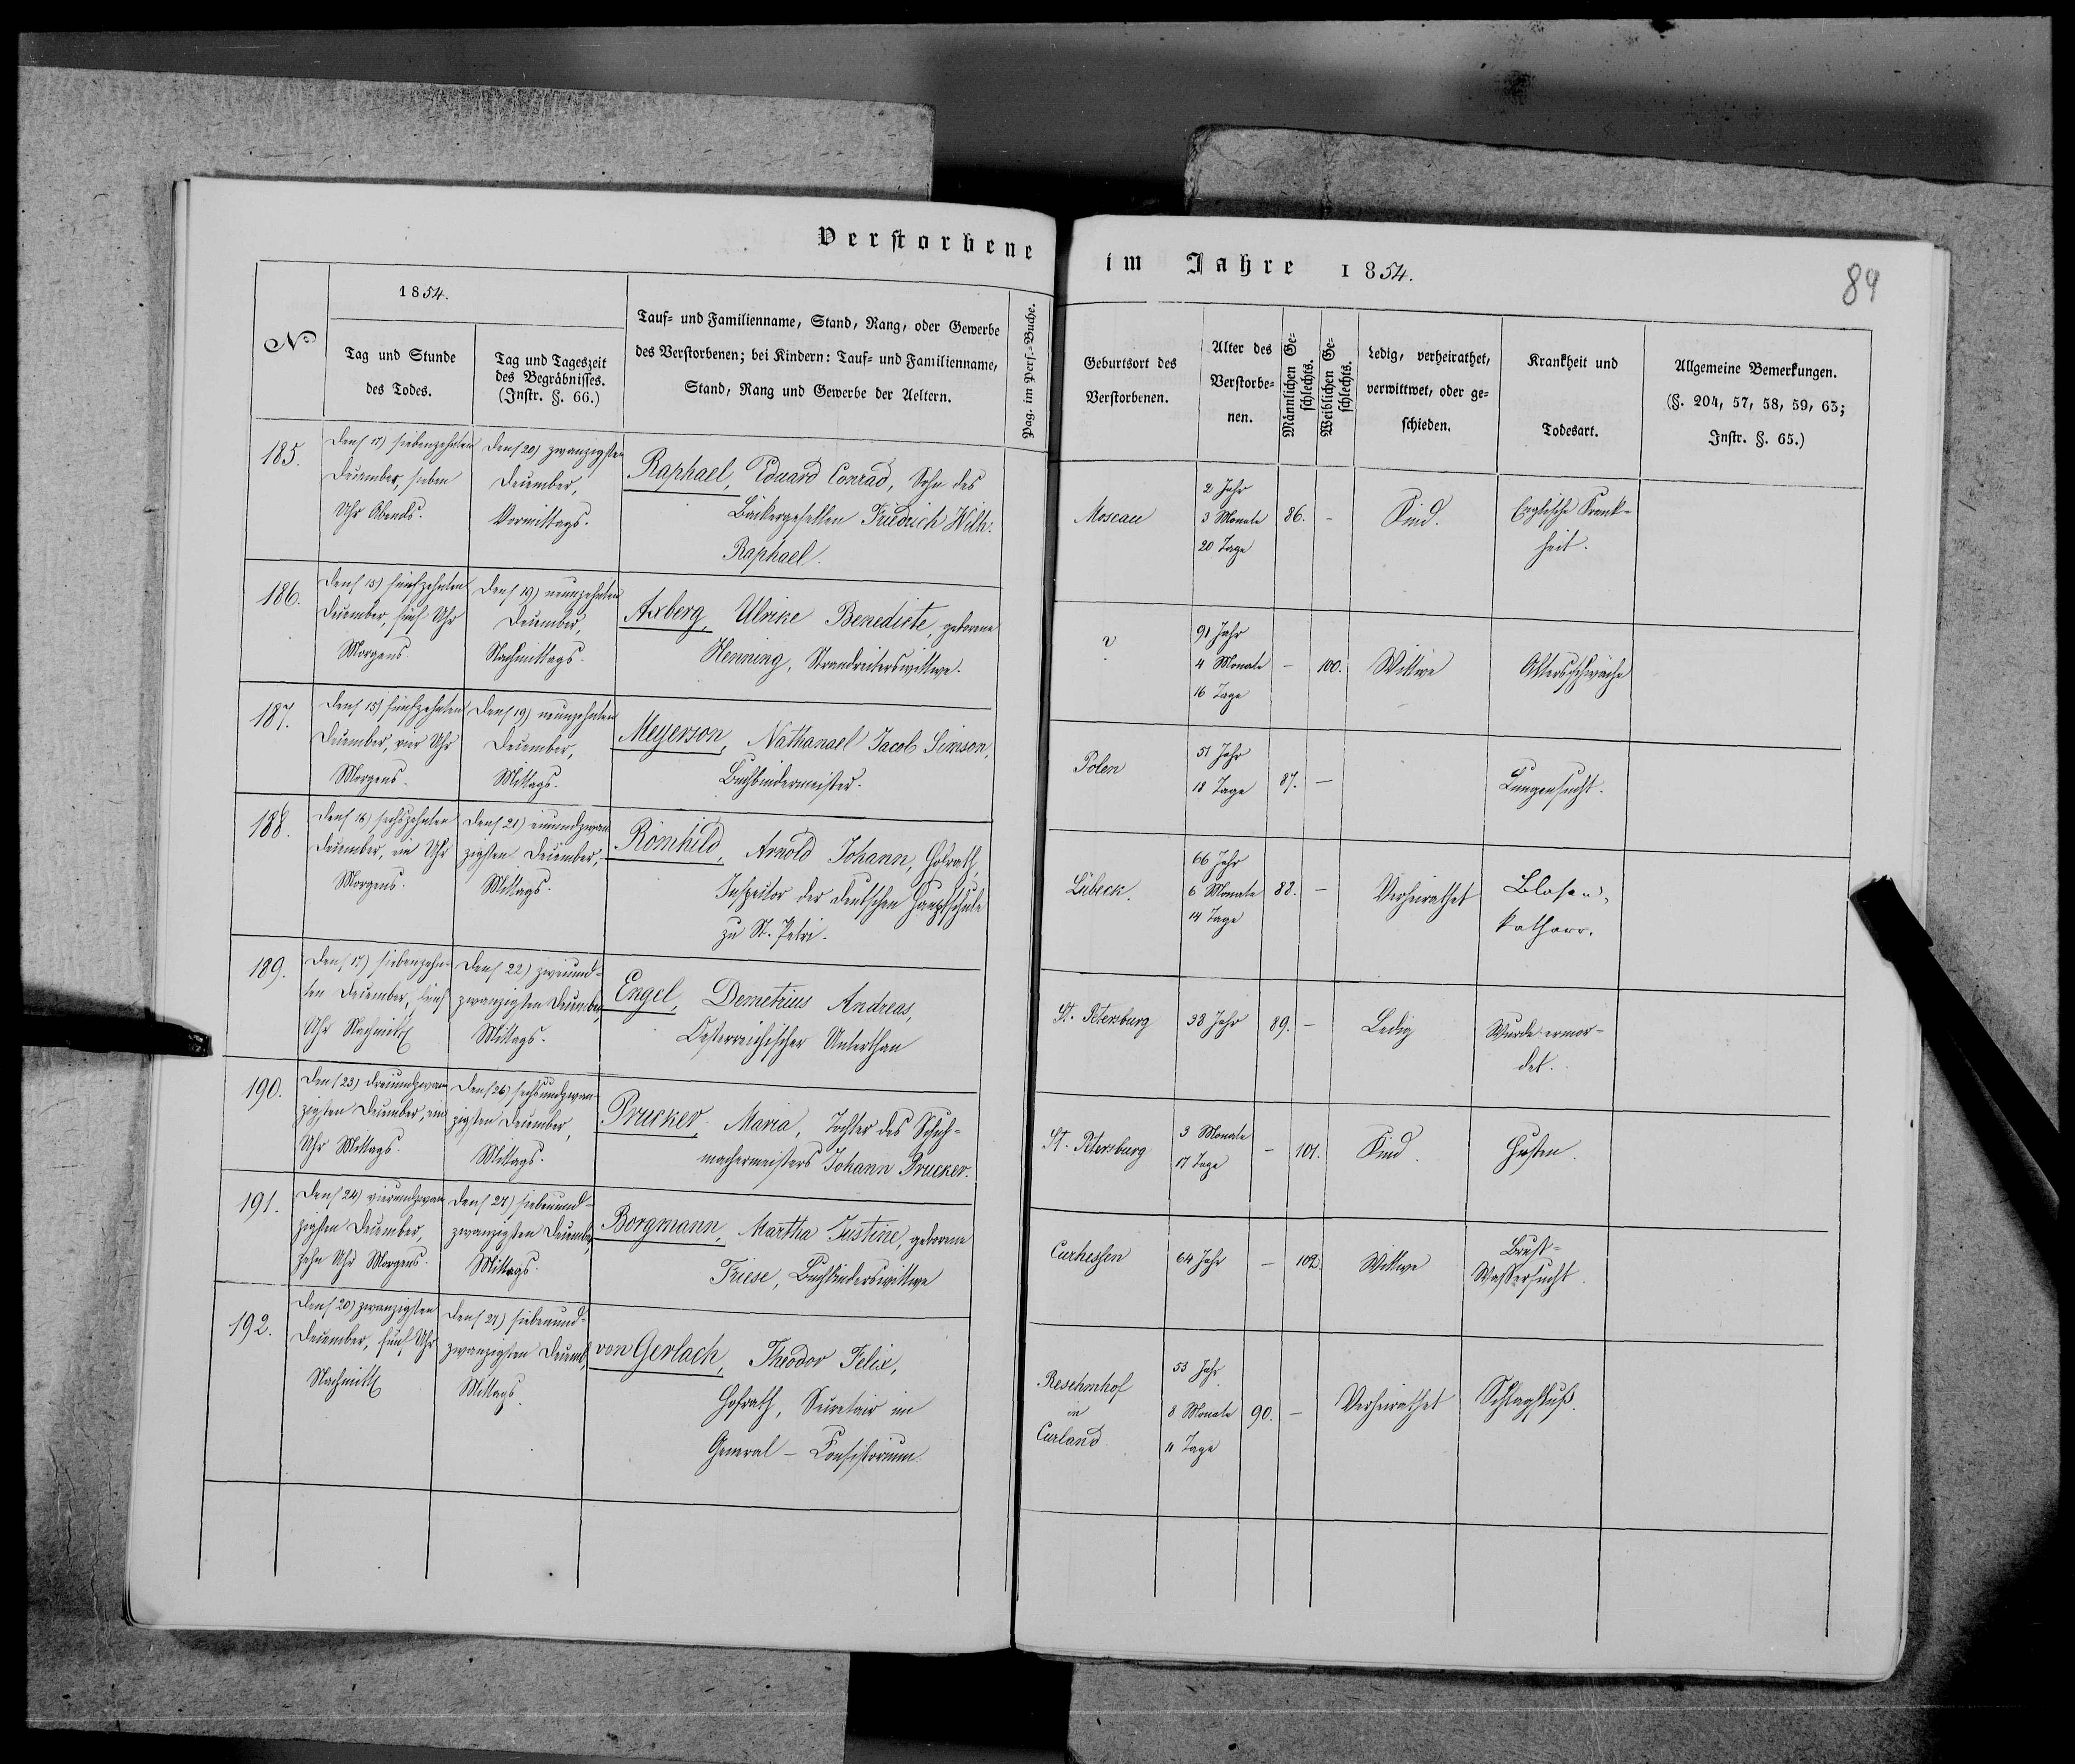 Verstorbene im Jahre 1854.
84
1854.
No
Tag und Stunde
des Todes.
Tag und Tageszeit
des Begräbnisses.
(Instr. §. 66.)
Tauf- und Familienname, Stand, Rang, oder Gewerbe
des Verstorbenen; bei Kindern: Tauf- und Familienname,
Stand, Rang und Gewerbe der Aeltern.
Pag. im Pers.-Buche.
Geburtsort des
Verstorbenen.
Alter des
Verstorbe-
nen.
Männlichen Ge-
schlechts.
Weiblichen Ge-
schlechts.
Ledig, verheirathet,
verwittwet, oder ge-
schieden.
Krankheit und
Todesart.
Allgemeine Bemerkungen.
(§. 204, 57, 58, 59, 63;
Instr. §. 65.)
185.
Den (17) siebenzehnten
December, sieben
Uhr Abends.
Den (20) zwanzigsten
December,
Vormittags.
Raphael, Eduard Conrad, Sohn des
Bäckergesellen Friedrich Wilh:
Raphael.
Moscau
2 Jahr
3 Monate
20 Tage
86.
-
Kind.
Englische Krank-
heit.
186.
Den (15) fünfzehnten
December, fünf Uhr
Morgens.
Den (19) neunzehnten
December,
Nachmittags.
Axberg, Ulrike Benedicte, geborene
Henning, Strandreiterswittwe.
?
91 Jahr
4 Monate
16 Tage
-
100.
Wittwe
Altersschwäche
187.
Den (15) fünfzehnten
December, vier Uhr
Morgens.
Den (19) neunzehnten
December,
Mittags.
Meyerson, Nathanael Jacob Simson,
Buchbindermeister.
Polen
51 Jahr
18 Tage
87.
-
Lungensucht.
188.
Den (16) sechszehnten
December, ein Uhr
Morgens.
Den (21) einundzwan-
zigsten December,
Mittags.
Römhild, Arnold Johann, Hofrath,
Inspector der deutschen Hauptschule
zu St. Petri.
Lübeck.
66 Jahr
6 Monate
14 Tage
88.
-
Verheirathet
Blasen-
katharr.
189.
Den (17) siebenzehn-
ten December, fünf
Uhr Nachmitt
Den (22) zweiund-
zwanzigsten December,
Mittags.
Engel, Demetrius Andreas,
Oesterreichischer Unterthan
St. Petersburg
38 Jahr
89.
-
Ledig
Wurde ermor-
det.
190.
Den (23) dreiundzwan
zigsten December, ein
Uhr Mittags.
Den (26) sechsundzwan-
zigsten December,
Mittags.
Prucker, Maria, Tochter des Schuh-
machermeisters Johann Prucker.
St. Petersburg
3 Monate
17 Tage
-
101.
Kind.
Husten.
191.
Den (24) vierundzwan
zigsten December,
zehn Uhr Morgens.
Den (27) siebenund-
zwanzigsten December,
Mittags.
Borgmann, Martha Justine, geborene
Friese, Buchbinderswittwe
Curhessen
64 Jahr
-
102.
Wittwe
Brust-
Wassersucht.
192.
Den (20) zwanzigsten
December, fünf Uhr
Nachmitt
Den (27) siebenund-
zwanzigsten Decemb,
Mittags.
von Gerlach, Theodor Felix,
Hofrath, Secretair im
General-Consistorium
Reschenhof
in
Curland
53 Jahr
8 Monate
11 Tage
90.
-
Verheirathet
Schlagfluß.